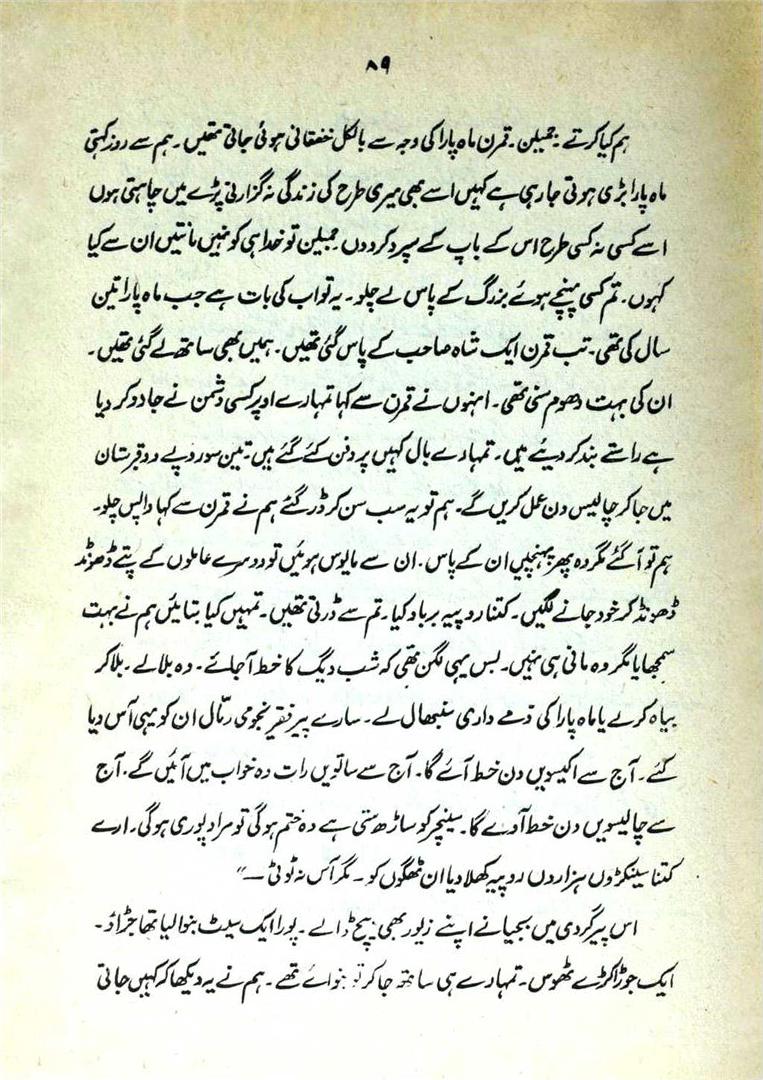 ۸۹
ہم کیا کرتے۔ جمیلن۔ قمرن ماہ پارا کی وجہ سے بالکل خفقانی ہوئی جاتی تھیں۔ ہم سے روز کہتی
ماہ پارا بڑی ہوتی جا رہی ہے کہیں اسے بھی میری طرح کی زندگی نہ گزارنی پڑے میں چاہتی ہوں
اسے کسی نہ کسی طرح اس کے باپ کے سپرد کر دوں جمیلن تو خدا ہی کو نہیں مانتیں ان سے کیا
کہوں۔ تم کسی پہنچے ہوئے بزرگ کے پاس لے چلو۔ یہ تو اب کی بات ہے جب ماہ پارا تین
سال کی تھی۔ تب قمرن ایک شاہ صاحب کے پاس گئی تھیں۔ ہمیں بھی ساتھ لے گئی تھیں۔
ان کی بہت دھوم سنی تھی۔ انہوں نے قمرن سے کہا تمہارے اوپر کسی دشمن نے جادو کر دیا
ہے راستے بند کر دیئے ہیں۔ تمہارے بال کہیں پر دفن کئے گئے ہیں۔ تین سو روپے دو قبرستان
میں جا کر چالیس دن عمل کریں گے۔ ہم تو یہ سب سن کر ڈر گئے ہم نے قمرن سے کہا واپس چلو۔
ہم تو آ گئے مگر وہ پھر پہنچیں ان کے پاس۔ ان سے مایوس ہوئیں تو دوسرے عاملوں کے پتے ڈھونڈ
ڈھونڈ کر خود جانے لگیں۔ کتنا روپیہ برباد کیا۔ تم سے ڈرتی تھیں۔ تمہیں کیا بتائیں ہم نے بہت
سمجھایا مگر وہ مانی ہی نہیں۔ بس یہی لگن تھی کہ شب دیگ کا خط آ جائے۔ وہ بلا لے۔ بلا کر
بیاہ کرلے یا ماہ پارا کی ذمے داری سنبھال لے۔ سارے پیر فقیر نجومی رمّال ان کو یہی آس دیا
کئے۔ آج سے اکیسویں دن خط آئے گا۔ آج سے ساتویں رات وہ خواب میں آئیں گے۔ آج
سے چالیسویں دن خط آوے گا۔ سینچر کو ساڑھ ستی ہے وہ ختم ہوگی تو مراد پوری ہوگی۔ ارے
کتنا سینکڑوں ہزاروں روپیہ کھلا دیا ان ٹھگوں کو۔ مگر آس نہ ٹوٹی —"
اس پیر گردی میں بجیا نے اپنے زیور بھی بیچ ڈالے۔ پورا ایک سیٹ بنوا لیا تھا جڑاؤ۔
ایک جوڑا کڑے ٹھوس۔ تمہارے ہی ساتھ جا کر تو بنوائے تھے۔ ہم نے یہ دیکھا کہ کہیں جاتی